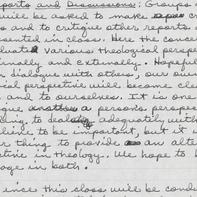 ports and Discussions: Groups
will be asked to make
s and to critique other reports.
esented in class. Here the cons
luated various theological perspe
inally and externally. Hopeful
n dialogue with others, our own
ical perspective will become cle
and to ourselves. It is one
gue a person's perspec
ding to adequately with
eline to be important, but it is
er thing to provide an alte
ctive in theology. We hope to
age in both.
ince this class will be condu